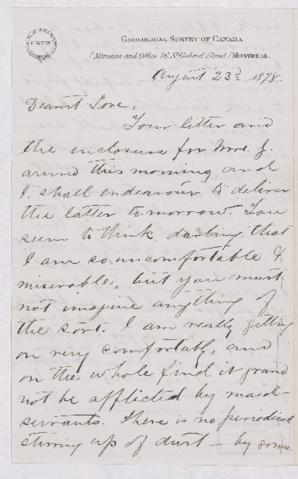 GEOLOGICAL SURVEY OF CANADA
(Museum and Office, 76 St. Gabriel Street) MONTREAL.
August 23rd 1878.
Dearest Love,
Your letter and
the enclosure for Mrs. J.
arrived this morning and
I shall endeavour to deliver
the latter tomorrow. You
seem to think, darling, that
I am so uncomfortable &
miserable, but you must
not imagine anything of
the sort. I am really getting
on very comfortably, and
on the whole find it grand
not be afflicted by maid-
servants. There is no periodical
stirring up of dust — by some